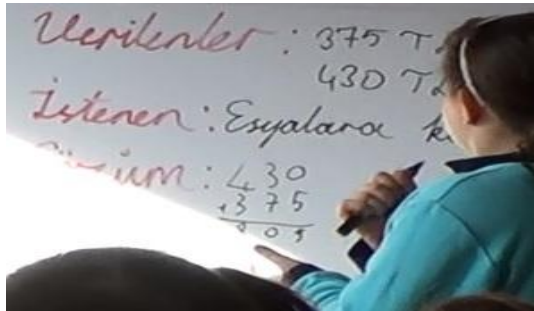 Verilenler : 375 TL
430 TL
İstenen : Eşyalara
Çözüm : 430
+375
805